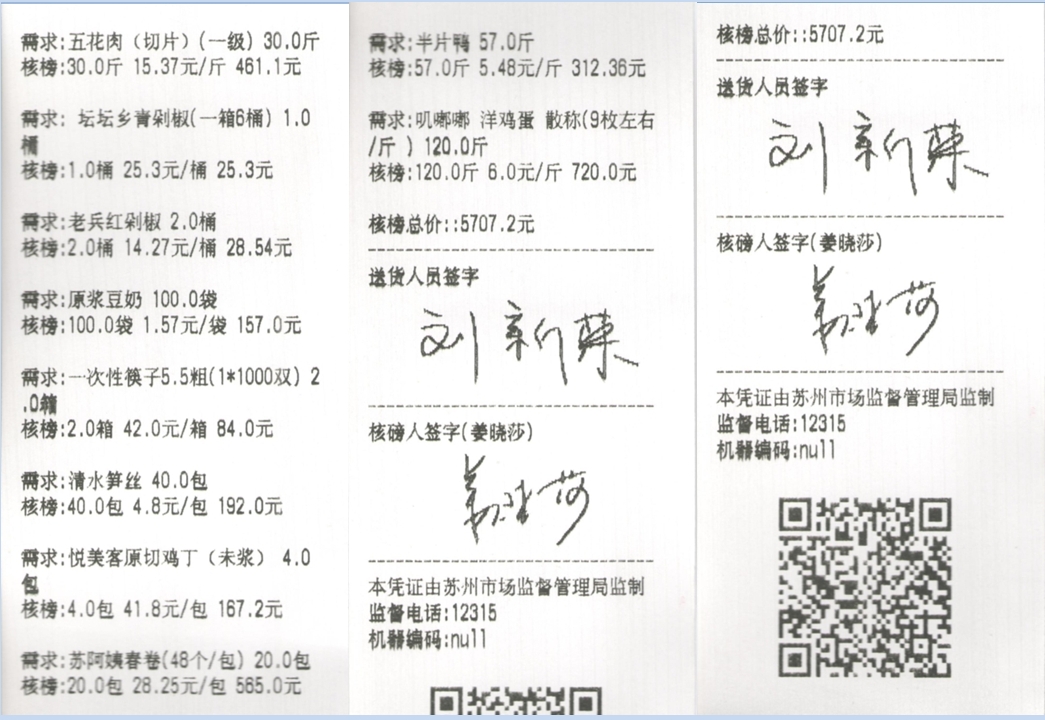 需求:五花肉（切片）(一级) 30.0斤
核榜:30.0斤 15.37元/斤 461.1元
需求: 坛坛乡青剁椒(一箱6桶) 1.0
桶
核榜:1.0桶 25.3元/桶 25.3元
需求:老兵红剁椒 2.0桶
核榜:2.0桶 14.27元/桶 28.54元
需求:原浆豆奶 100.0袋
核榜:100.0袋 1.57元/袋 157.0元
需求:一次性筷子5.5粗(1*1000双) 2
.0箱
核榜:2.0箱 42.0元/箱 84.0元
需求:清水笋丝 40.0包
核榜:40.0包 4.8元/包 192.0元
需求:悦美客原切鸡丁（未浆） 4.0
包
核榜:4.0包 41.8元/包 167.2元
需求:苏阿姨春卷(48个/包) 20.0包
核榜:20.0包 28.25元/包 565.0元
需求:半片鸭 57.0斤
核榜:57.0斤 5.48元/斤 312.36元
需求:叽嘟嘟 洋鸡蛋 散称(9枚左右
/斤 ) 120.0斤
核榜:120.0斤 6.0元/斤 720.0元
核榜总价::5707.2元
送货人员签字
刘新荣
核磅人签字(姜晓莎)
姜晓莎
本凭证由苏州市场监督管理局监制
监督电话:12315
机器编码:null
核榜总价::5707.2元
送货人员签字
刘新荣
核磅人签字(姜晓莎)
姜晓莎
本凭证由苏州市场监督管理局监制
监督电话:12315
机器编码:null